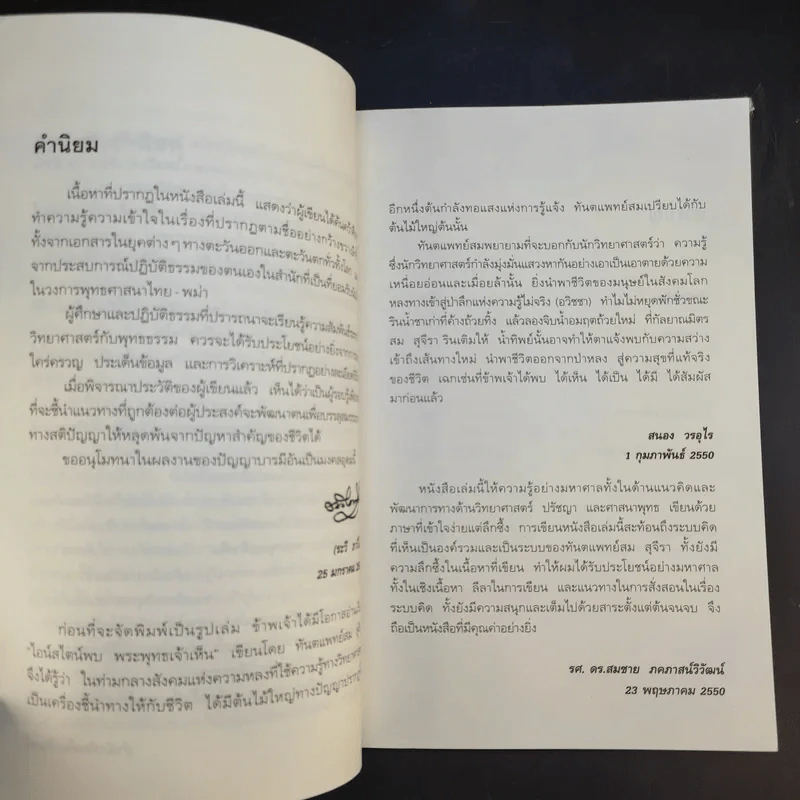 คำนิยม
เนื้อหาที่ปรากฏในหนังสือเล่มนี้ แสดงว่าผู้เขียนได้ค้นคว้า
ทำความรู้ความเข้าใจในเรื่องที่ปรากฏตามชื่ออย่างกว้างขวาง
ทั้งจากเอกสารในยุคต่างๆ ทางตะวันออกและตะวันตกทั่วทั้งโลก
จากประสบการณ์ปฏิบัติธรรมของตนเองในสำนักที่เป็นที่ยอมรับ
ในวงการพุทธศาสนาไทย - พม่า
ผู้ศึกษาและปฏิบัติธรรมที่ปรารถนาจะเรียนรู้ความสัมพันธ์
วิทยาศาสตร์กับพุทธธรรม ควรจะได้รับประโยชน์อย่างยิ่งจากการ
ใคร่ครวญ ประเด็นข้อมูล และการวิเคราะห์ที่ปรากฏอย่างละเอียด
เมื่อพิจารณาประวัติของผู้เขียนแล้ว เห็นได้ว่าเป็นผู้รอบรู้
ที่จะชี้นำแนวทางที่ถูกต้องต่อผู้ประสงค์จะพัฒนาตนเพื่อบรรลุ
ทางสติปัญญาให้หลุดพ้นจากปัญหาสำคัญของชีวิตได้
ขออนุโมทนาในผลงานของปัญญาบารมีอันเป็นมงคลอุดมนี้
(ระวี
25 มกราคม
ก่อนที่จะจัดพิมพ์เป็นรูปเล่ม ข้าพเจ้าได้มีโอกาสอ่าน
"ไอน์สไตน์พบ พระพุทธเจ้าเห็น" เขียนโดย ทันตแพทย์สม
จึงได้รู้ว่า ในท่ามกลางสังคมแห่งความหลงที่ใช้ความรู้ทางวิทยาศาสตร์
เป็นเครื่องชี้นำทางให้กับชีวิต ได้มีต้นไม้ใหญ่ทางปัญญาปรากฏ
อีกหนึ่งต้นกำลังทอแสงแห่งการรู้แจ้ง ทันตแพทย์สมเปรียบได้กับ
ต้นไม้ใหญ่ต้นนั้น
ทันตแพทย์สมพยายามที่จะบอกกับนักวิทยาศาสตร์ว่า ความรู้
ซึ่งนักวิทยาศาสตร์กำลังมุ่งมั่นแสวงหากันอย่างเอาเป็นเอาตายด้วยความ
เหนื่อยอ่อนและเมื่อยล้านั้น ยิ่งนำพาชีวิตของมนุษย์ในสังคมโลก
หลงทางเข้าสู่ป่าลึกแห่งความรู้ไม่จริง (อวิชชา) ทำไมไม่หยุดพักชั่วขณะ
รินน้ำชาเก่าที่ค้างถ้วยทิ้ง แล้วลองจิบน้ำอมฤตถ้วยใหม่ ที่กัลยาณมิตร
สม สุจีรา รินเติมให้ น้ำทิพย์นั้นอาจทำให้ตาแจ้งพบกับความสว่าง
เข้าถึงเส้นทางใหม่ นำพาชีวิตออกจากป่าหลง สู่ความสุขที่แท้จริง
ของชีวิต เฉกเช่นที่ข้าพเจ้าได้พบ ได้เห็น ได้เป็น ได้มี ได้สัมผัส
มาก่อนแล้ว
สนอง วรอุไร
1 กุมภาพันธ์ 2550
หนังสือเล่มนี้ให้ความรู้อย่างมหาศาลทั้งในด้านแนวคิดและ
พัฒนาการทางด้านวิทยาศาสตร์ ปรัชญา และศาสนาพุทธ เขียนด้วย
ภาษาที่เข้าใจง่ายแต่ลึกซึ้ง การเขียนหนังสือเล่มนี้สะท้อนถึงระบบคิด
ที่เห็นเป็นองค์รวมและเป็นระบบของทันตแพทย์สม สุจีรา ทั้งยังมี
ความลึกซึ้งในเนื้อหาที่เขียน ทำให้ผมได้รับประโยชน์อย่างมหาศาล
ทั้งในเชิงเนื้อหา ลีลาในการเขียน และแนวทางในการสั่งสอนในเรื่อง
ระบบคิด ทั้งยังมีความสนุกและเต็มไปด้วยสาระตั้งแต่ต้นจนจบ จึง
ถือเป็นหนังสือที่มีคุณค่าอย่างยิ่ง
รศ. ดร.สมชาย ภคภาสน์วิวัฒน์
23 พฤษภาคม 2550